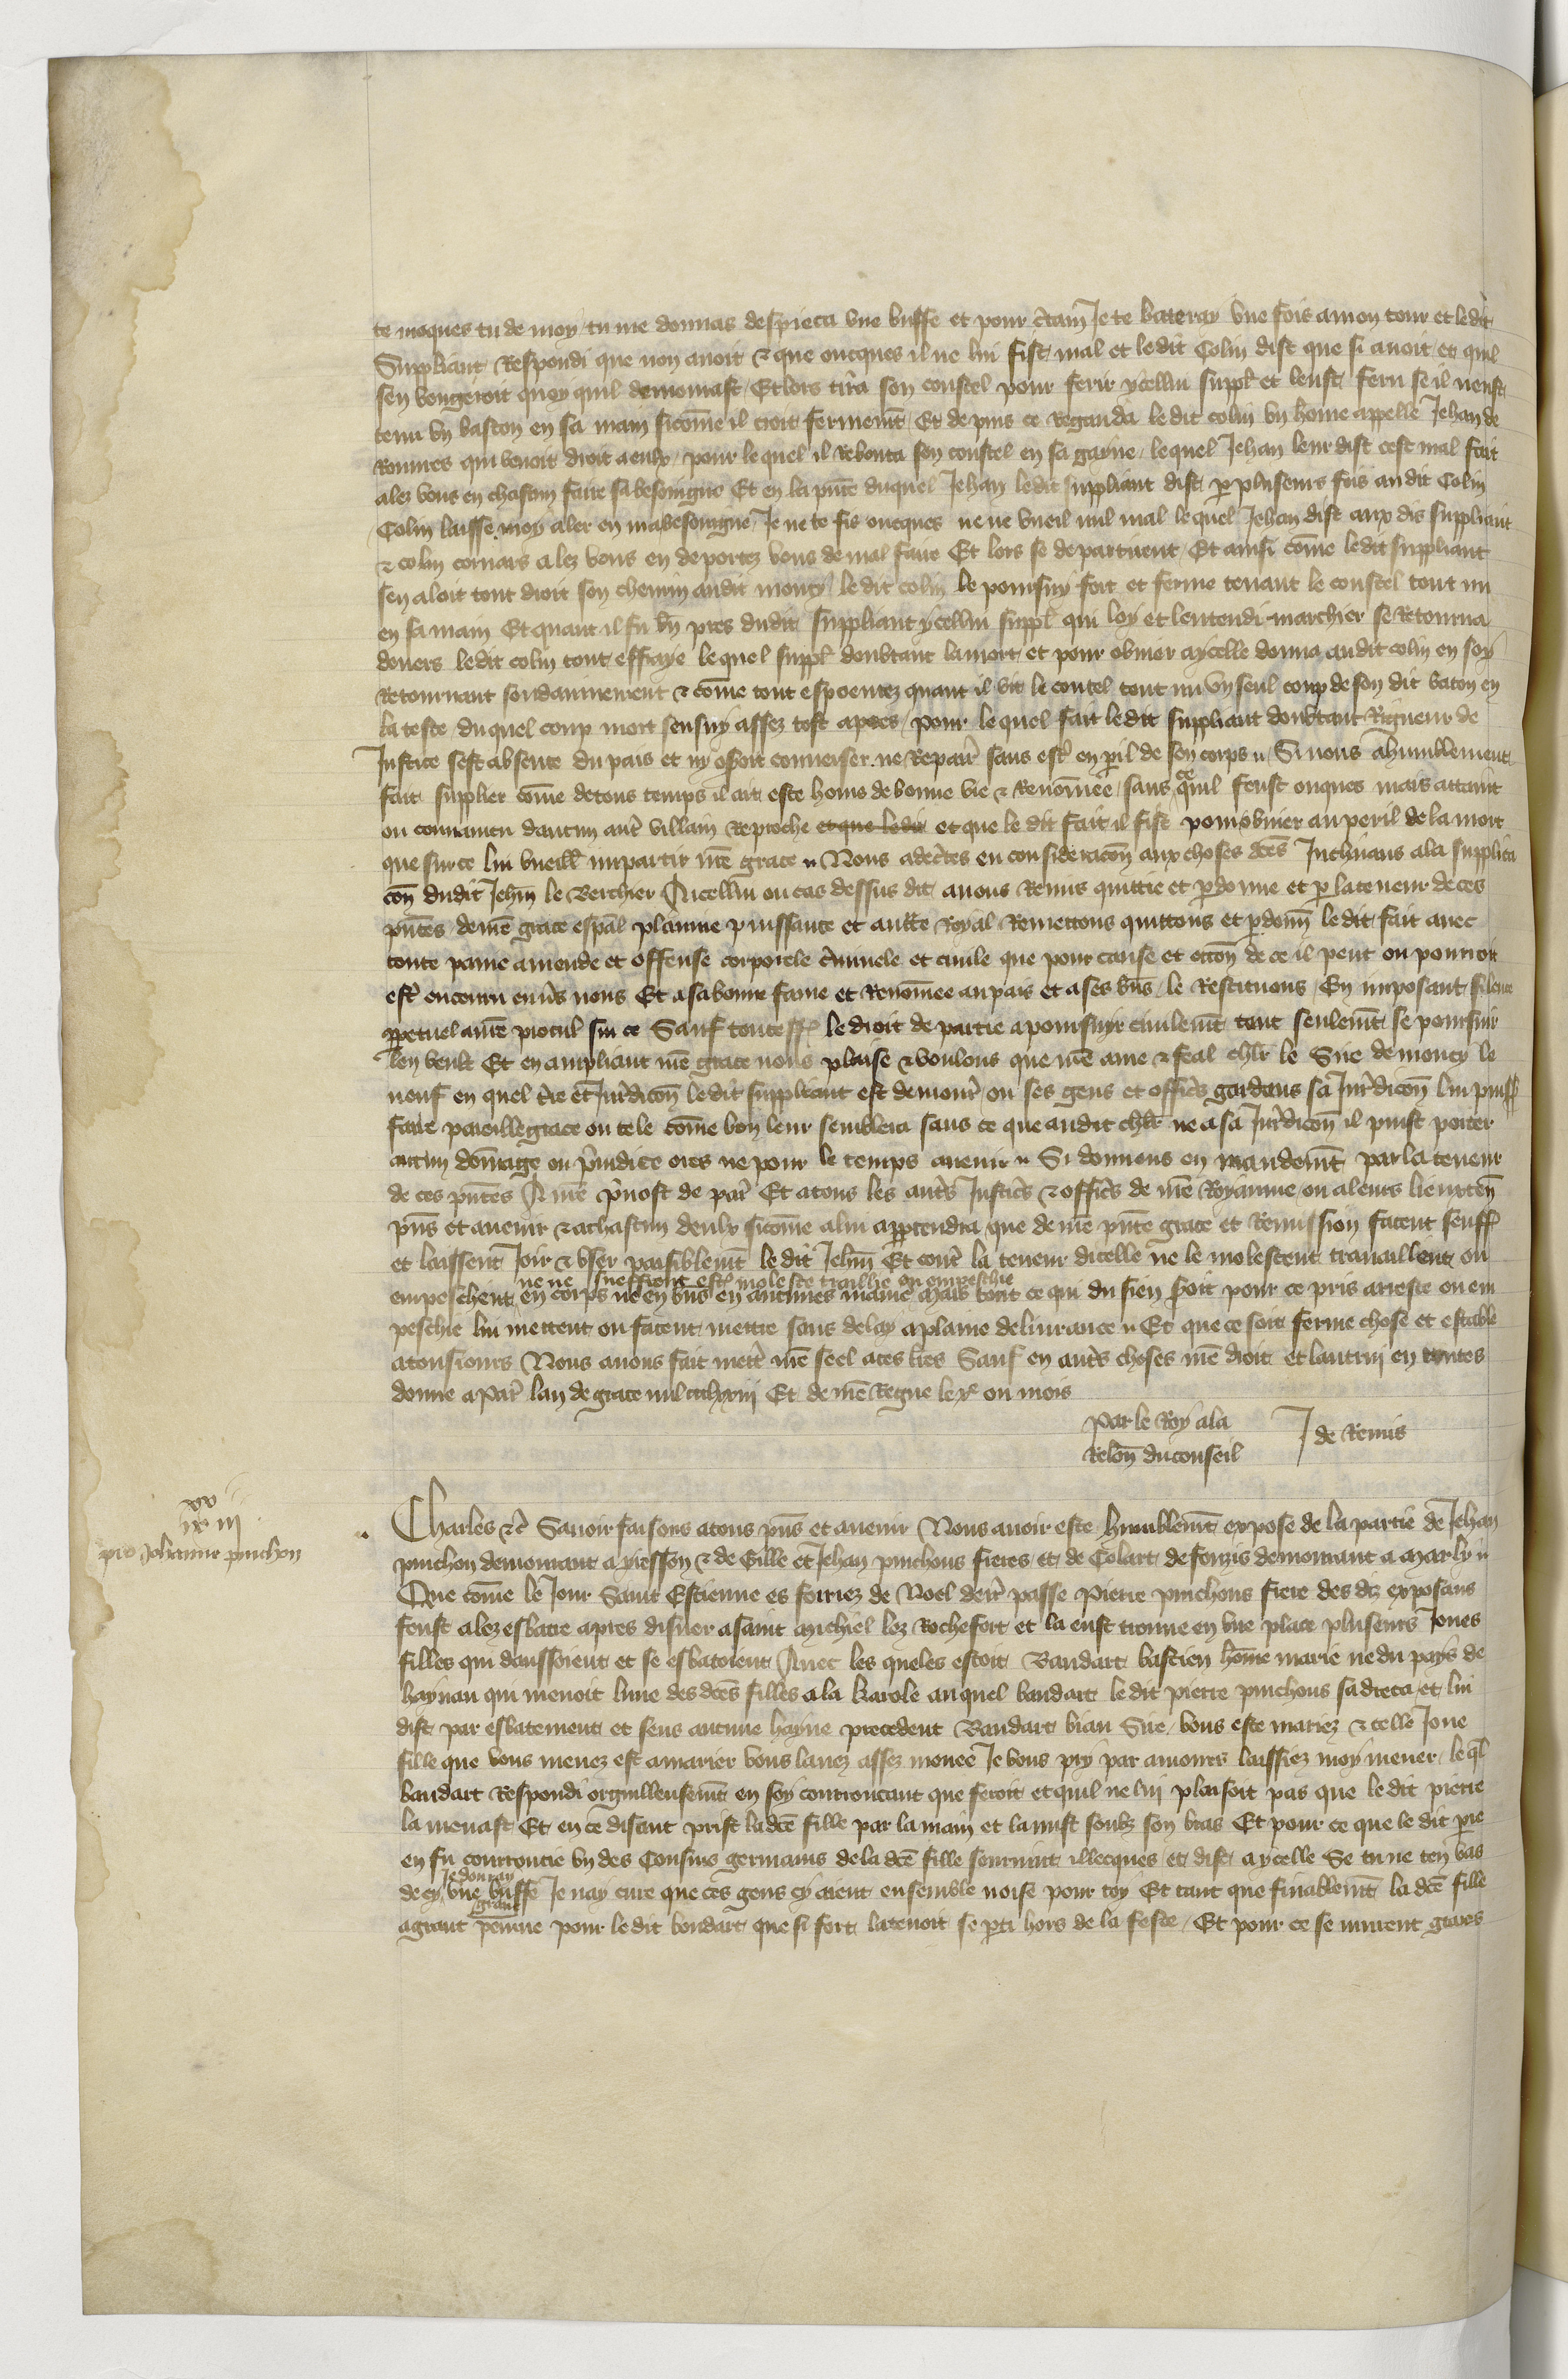 te moques tu de moy tu me donnas despieca une buffe et pour c̃tain Je te bateray une fois a mon tour et ledit
Suppliant Respondi que non avoit & que oncques il ne lui fist mal et ledit Colin dist que si avoit et quil
sen vengeroit quoy quil demourast Et lors tira son coustel pour ferir ycellui suppl̃ et leust feru se il neust
tenu un baston en sa main sicõme il croit fermem̃t Et depuis ce Reganda le dit colin un hõme appelle Jehan de
Rouvres qui venoit droit a eulx pour lequel il Rebouta son coustel en sa gayne lequel Jehan leur dist cest mal fait
alez vous en chascun faire sa besoingne Et en la p̃nce duquel Jehan ledit suppliant dist p pluseurs fois audit Colin
Colin laisse moy aler en ma besoingne Je ne te fis oncques ne ne vueil nul mal lequel Jehan dist aux dis suppliant
& colin cornars alez vous en deportez vous de mal faire Et lors se departirent Et ainsi cõme ledit suppliant
sen aloit tout droit son chemin audit moncy le dit colin le poursuy fort et ferme tenant le coustel tout nu
en sa main Et quant il fu bn̄ pres dudit suppliant ycellui suppl̃ qui loy et lentendi marchier se Retourna
devers ledit colin tout effraye lequel suppl̃ doubtant la mort et pour obvier a ycelle donna audit colin en soy
Retournant soudainnement & cõme tout espoentez quant il vit le coutel tout nu un seul coup de son dit baton en
la teste duquel coup mort sensuy assez tost apres pour lequel fait ledit suppliant doubtant Rigueur de
Justice sest absente du pais et ny oseroit converser ne Repair̃ sans est̃ en peril de son corps Si nous a humblement
fait supplier cõme de tous temps il ait este homs de bonne vie & Renõmee sans ce quil feust onques mais attaint
ou convaincu daucun aut̃ villain Reproche et que ledit et que le dit fait il fist pour obvier au peril de la mort
que sur ce lui vueill̃ impartir n̄re grace Nous adc̃tes en consideracõn aux choses dc̃es Inclinans a la supplica
cõn dudit Jehan le Berchier A icellui ou cas dessus dit avons Remis quittie et pardonne et p la teneur de ces
p̃ntes de n̄re grace esp̃al plainne puissance et auct̃e Royal Remettons quittons et p̃donn̄ le dit fait avec
toute paine amende et offense corporele c̃minele et civile que pour cause et occõn de ce il peut ou pourroit
est̃ encouru env̄s nous Et a sa bonne fame et Renõmee au pais et a ses bn̄s le Restituons En imposant silence
ppetuel a n̄re procul̃ sur ce Sauf toutesf̃ le droit de partie a poursuyr civilem̃t tout seulem̃t se poursuir
len veult Et en ampliant n̄re grace nous plaise & voulons que n̄re ame & feal ch̃lr le Sire de moncy le
neuf en quel t̃re et Jur̃dicõn ledit suppliant est demour̃ ou ses gens et offic̃s gardans sa Jur̃dicõn lui puiss̃
faire pareille grace ou tele cõme bon leur semblera sans ce que audit ch̃lr ne a sa Jur̃dicõn il puist porter
aucun dõmage ou p̃iudice ores ne pour le temps avenir Si donnons en mandem̃t par la teneur
de ces p̃ntes A n̄re p̃vost de par̃ Et a tous les aut̃s Justic̃s & offic̃s de n̄re Royaume ou a leurs lieuxten̄
p̃ns et avenir & a chascun deulx sicõme a lui apptendra que de n̄re p̃nte grace et Remission facent seuff̃
et laissent Joir & user paisiblem̃t le dit Jeh̃n Et cont̃ la teneur dicelle ne le molestent travaillent ou
ne ne sueffrent est̃ moleste traillie ou empeschie
empeschent en corps ne en bn̄s en aucunes manie Mais tout ce qui du sien seroit pour ce pris arreste ou em
peschie lui mettent ou facent mettre sans delay a plaine delivrance Et que ce soit ferme chose et estable
a tousiours Nous avons fait mett̃ n̄re seel a ces l̃res Sauf en aut̃s choses n̄re droit et lautrui en toutes
donne a Par̃ lan de grace mil ccclxxiii Et de n̄re Regne le xe ou mois
Par le Roy a la
Relõn du conseil J de Remis
xx
ix iii
pro Johanne pinchon
Charles &c̃ Savoir faisons a tous p̃ns et avenir Nous avoir este humblem̃t expose de la partie de Jehan
pinchon demourant a yiesson & de Gille et Jehan pinchons freres et de Colart de fonzis demourant a Marly
Que cõme le Jour Saint Estienne es foiriez de Noel derr̃ passe Pierre pinchons frere des diz exposans
feust alez esbatre apres disner a saint Michiel lez Rochefort et la eust trouve en une place pluseurs Jones
filles qui danssoient et se esbatoient Avec les queles estoit Baudart bastien hõme marie ne du pays de
haynau qui menoit lune des dc̃es filles a la karole auquel baudart le dit pierre pinchons sadreca et lui
dist par esbatement et sens aucune hayne precedent Baudart biau Sire vous este mariez & celle Jone
fille que vous menez est a marier vous lavez assez menee Je vous pry par amours laissiez moy mener leq̃l
baudart Respondi orguilleusem̃t en soy courroucant que feroit et quil ne lui plaisoit pas que le dit pierre
la menast Et en ce disant prist la dc̃e fille par la main et la mist soubz son bras Et pour ce que le dit p̃re
en fu courroucie un des Cousins germains de la dc̃e fille seurvint illecques et dist a ycelle Se tu ne ten vas
Je donray
de cy une buffe Je nay cure que ces gens cy aient ensemble noise pour toy Et tant que finablem̃t la dc̃e fille
grant
a grant penne pour le dit boudart que si fort la tenoit se pti hors de la feste Et pour ce se murent graves